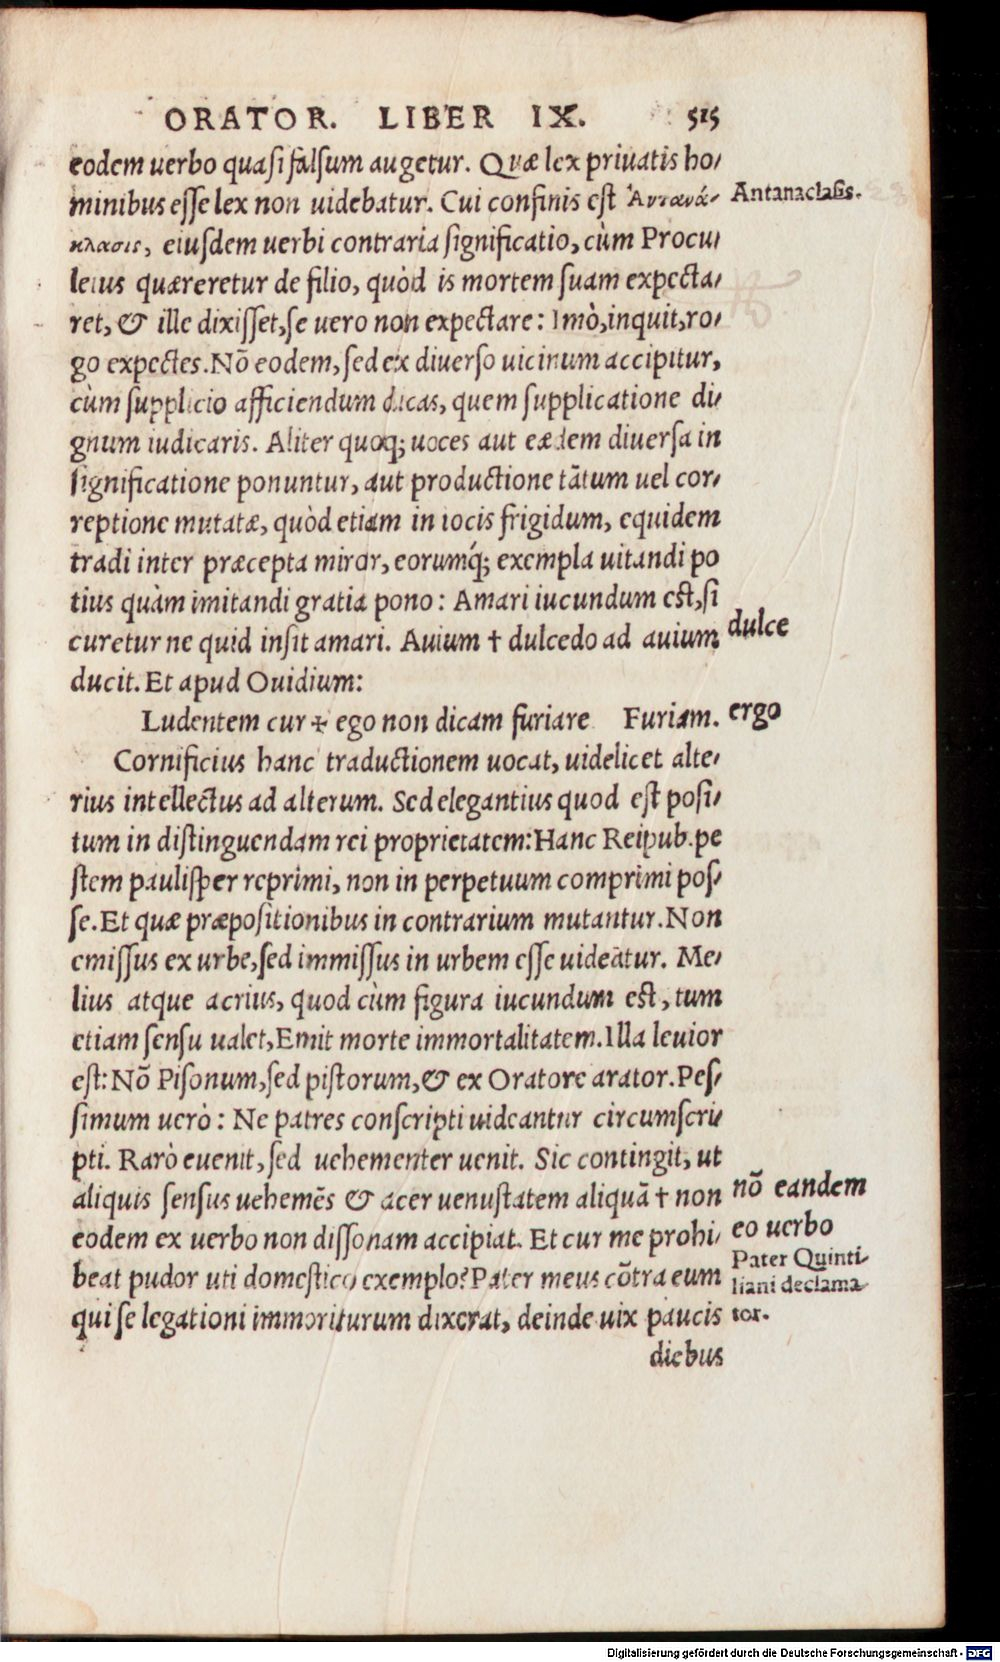 ORATOR. LIBER IX. 515
eodem uerbo quasi falsum augetur. Quæ lex priuatis ho/
minibus esse lex non uidebatur. Cui confinis est Ἀντανά-
Antanaclasis.
κλασις, eiusdem uerbi contraria significatio, cùm Procu/
leius quæreretur de filio, quòd is mortem suam expecta/
ret, & ille dixisset, se uero non expectare: Imò, inquit, ro/
go expectes. Nō eodem, sed ex diuerso uicinum accipitur,
cùm supplicio afficiendum dicas, quem supplicatione di/
gnum iudicaris. Aliter quoq; uoces aut eædem diuersa in
significatione ponuntur, aut productione tātum uel cor/
reptione mutatæ, quòd etiam in iocis frigidum, equidem
tradi inter præcepta miror, eorumq́; exempla uitandi po
tius quàm imitandi gratia pono: Amari iucundum est, si
curetur ne quid insit amari. Auium † dulcedo ad auium
dulce
ducit. Et apud Ouidium:
Ludentem cur ☩ ego non dicam furiare Furiam.
ergo
Cornificius hanc traductionem uocat, uidelicet alte/
rius intellectus ad alterum. Sed elegantius quod est posi/
tum in distinguendam rei proprietatem: Hanc Reipub. pe
stem paulisper reprimi, non in perpetuum comprimi pos/
se. Et quæ præpositionibus in contrarium mutantur. Non
emissus ex urbe, sed immissus in urbem esse uideatur. Me/
lius atque acrius, quod cùm figura iucundum est, tum
etiam sensu ualet, Emit morte immortalitatem. Illa leuior
est: Nō Pisonum, sed pistorum, & ex Oratore arator. Pes/
simum uerò: Ne patres conscripti uideantur circumscri/
pti. Rarò euenit, sed uehementer uenit. Sic contingit, ut
aliquis sensus uehemēs & acer uenustatem aliquā † non
nō eandem
eodem ex uerbo non dissonam accipiat. Et cur me prohi/
eo uerbo
beat pudor uti domestico exemplo? Pater meus cōtra eum
Pater Quinti-
liani declama-
qui se legationi immoriturum dixerat, deinde uix paucis
tor.
diebus
Digitalisierung gefördert durch die Deutsche Forschungsgemeinschaft - DFG